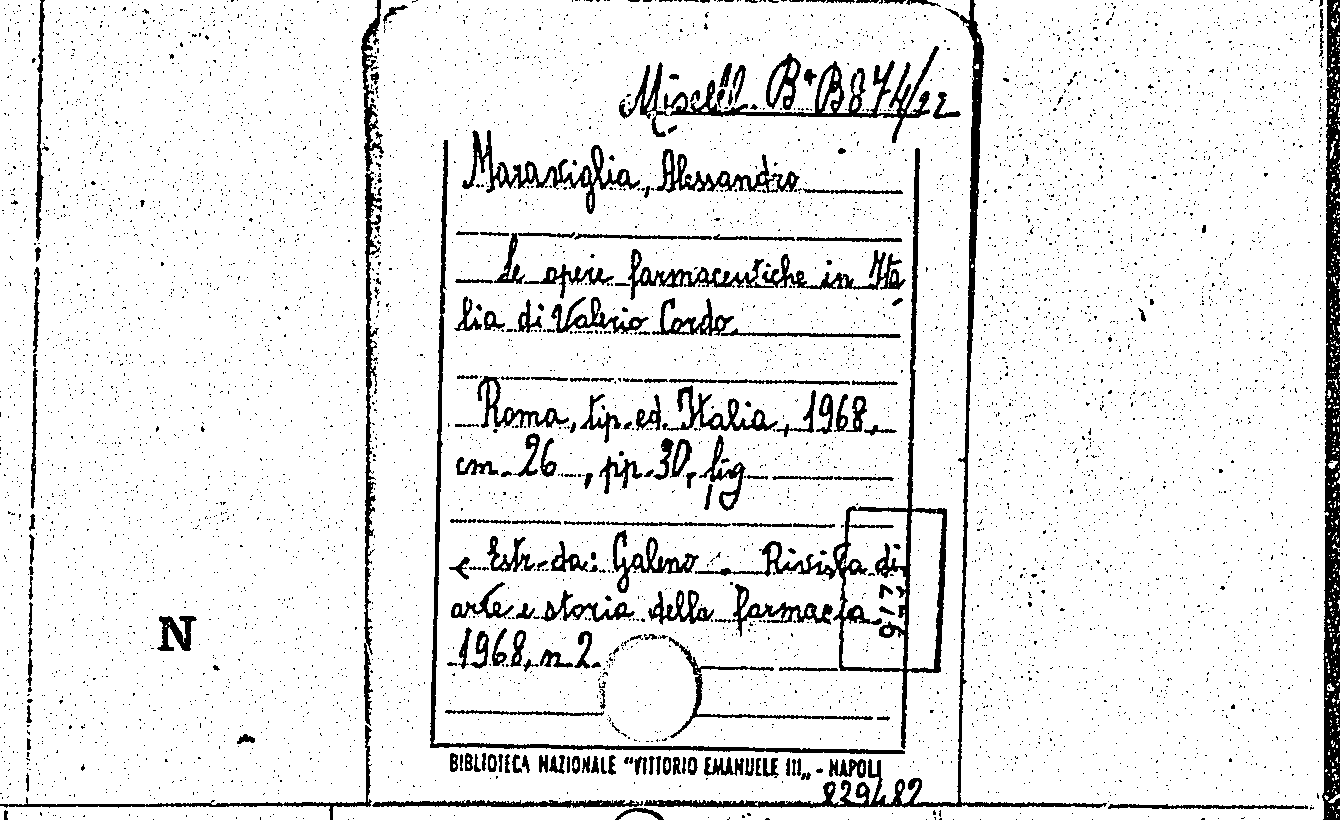 Miscell. B*B874/22
Maraviglia, Alessandro
Le opere farmaceutiche in Ita
lia di Valerio Cordo.
Roma, tip. ed. Italia, 1968.
cm. 26, pp. 30, fig
Estr. da: Galeno. Rivista di
arte e storia della farmacia.
1968, n. 2.
N
BIBLIOTECA NAZIONALE "VITTORIO EMANUELE III„ - NAPOLI
829482